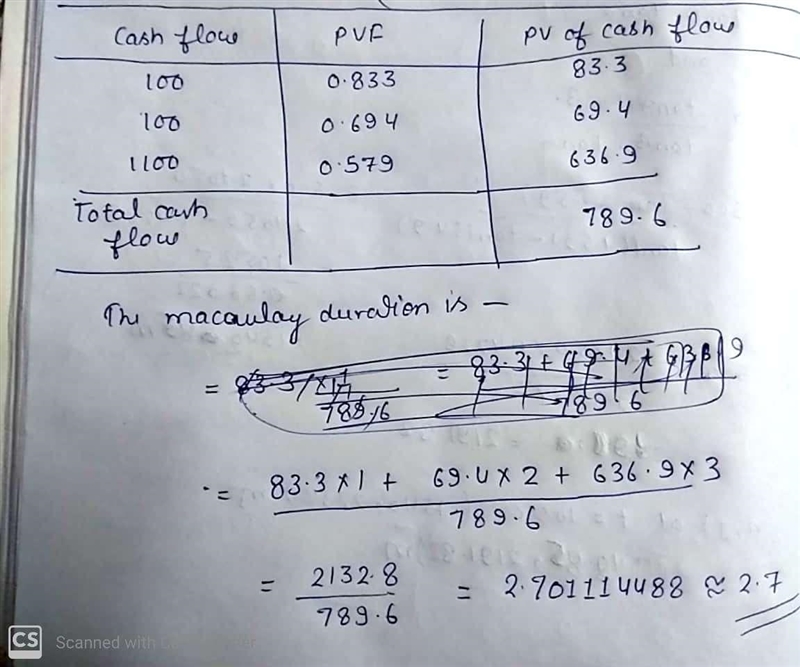 Cash flow PVF PV of cash flow
100 0.833 83.3
100 0.694 69.4
1100 0.579 636.9
Total cash 789.6
flow
The macaulay duration is —
= 83.3 × 1 + 69.4 × 2 + 636.9 × 3
789.6
= 2132.8 = 2.701114488 ≈ 2.7
789.6
CS Scanned with